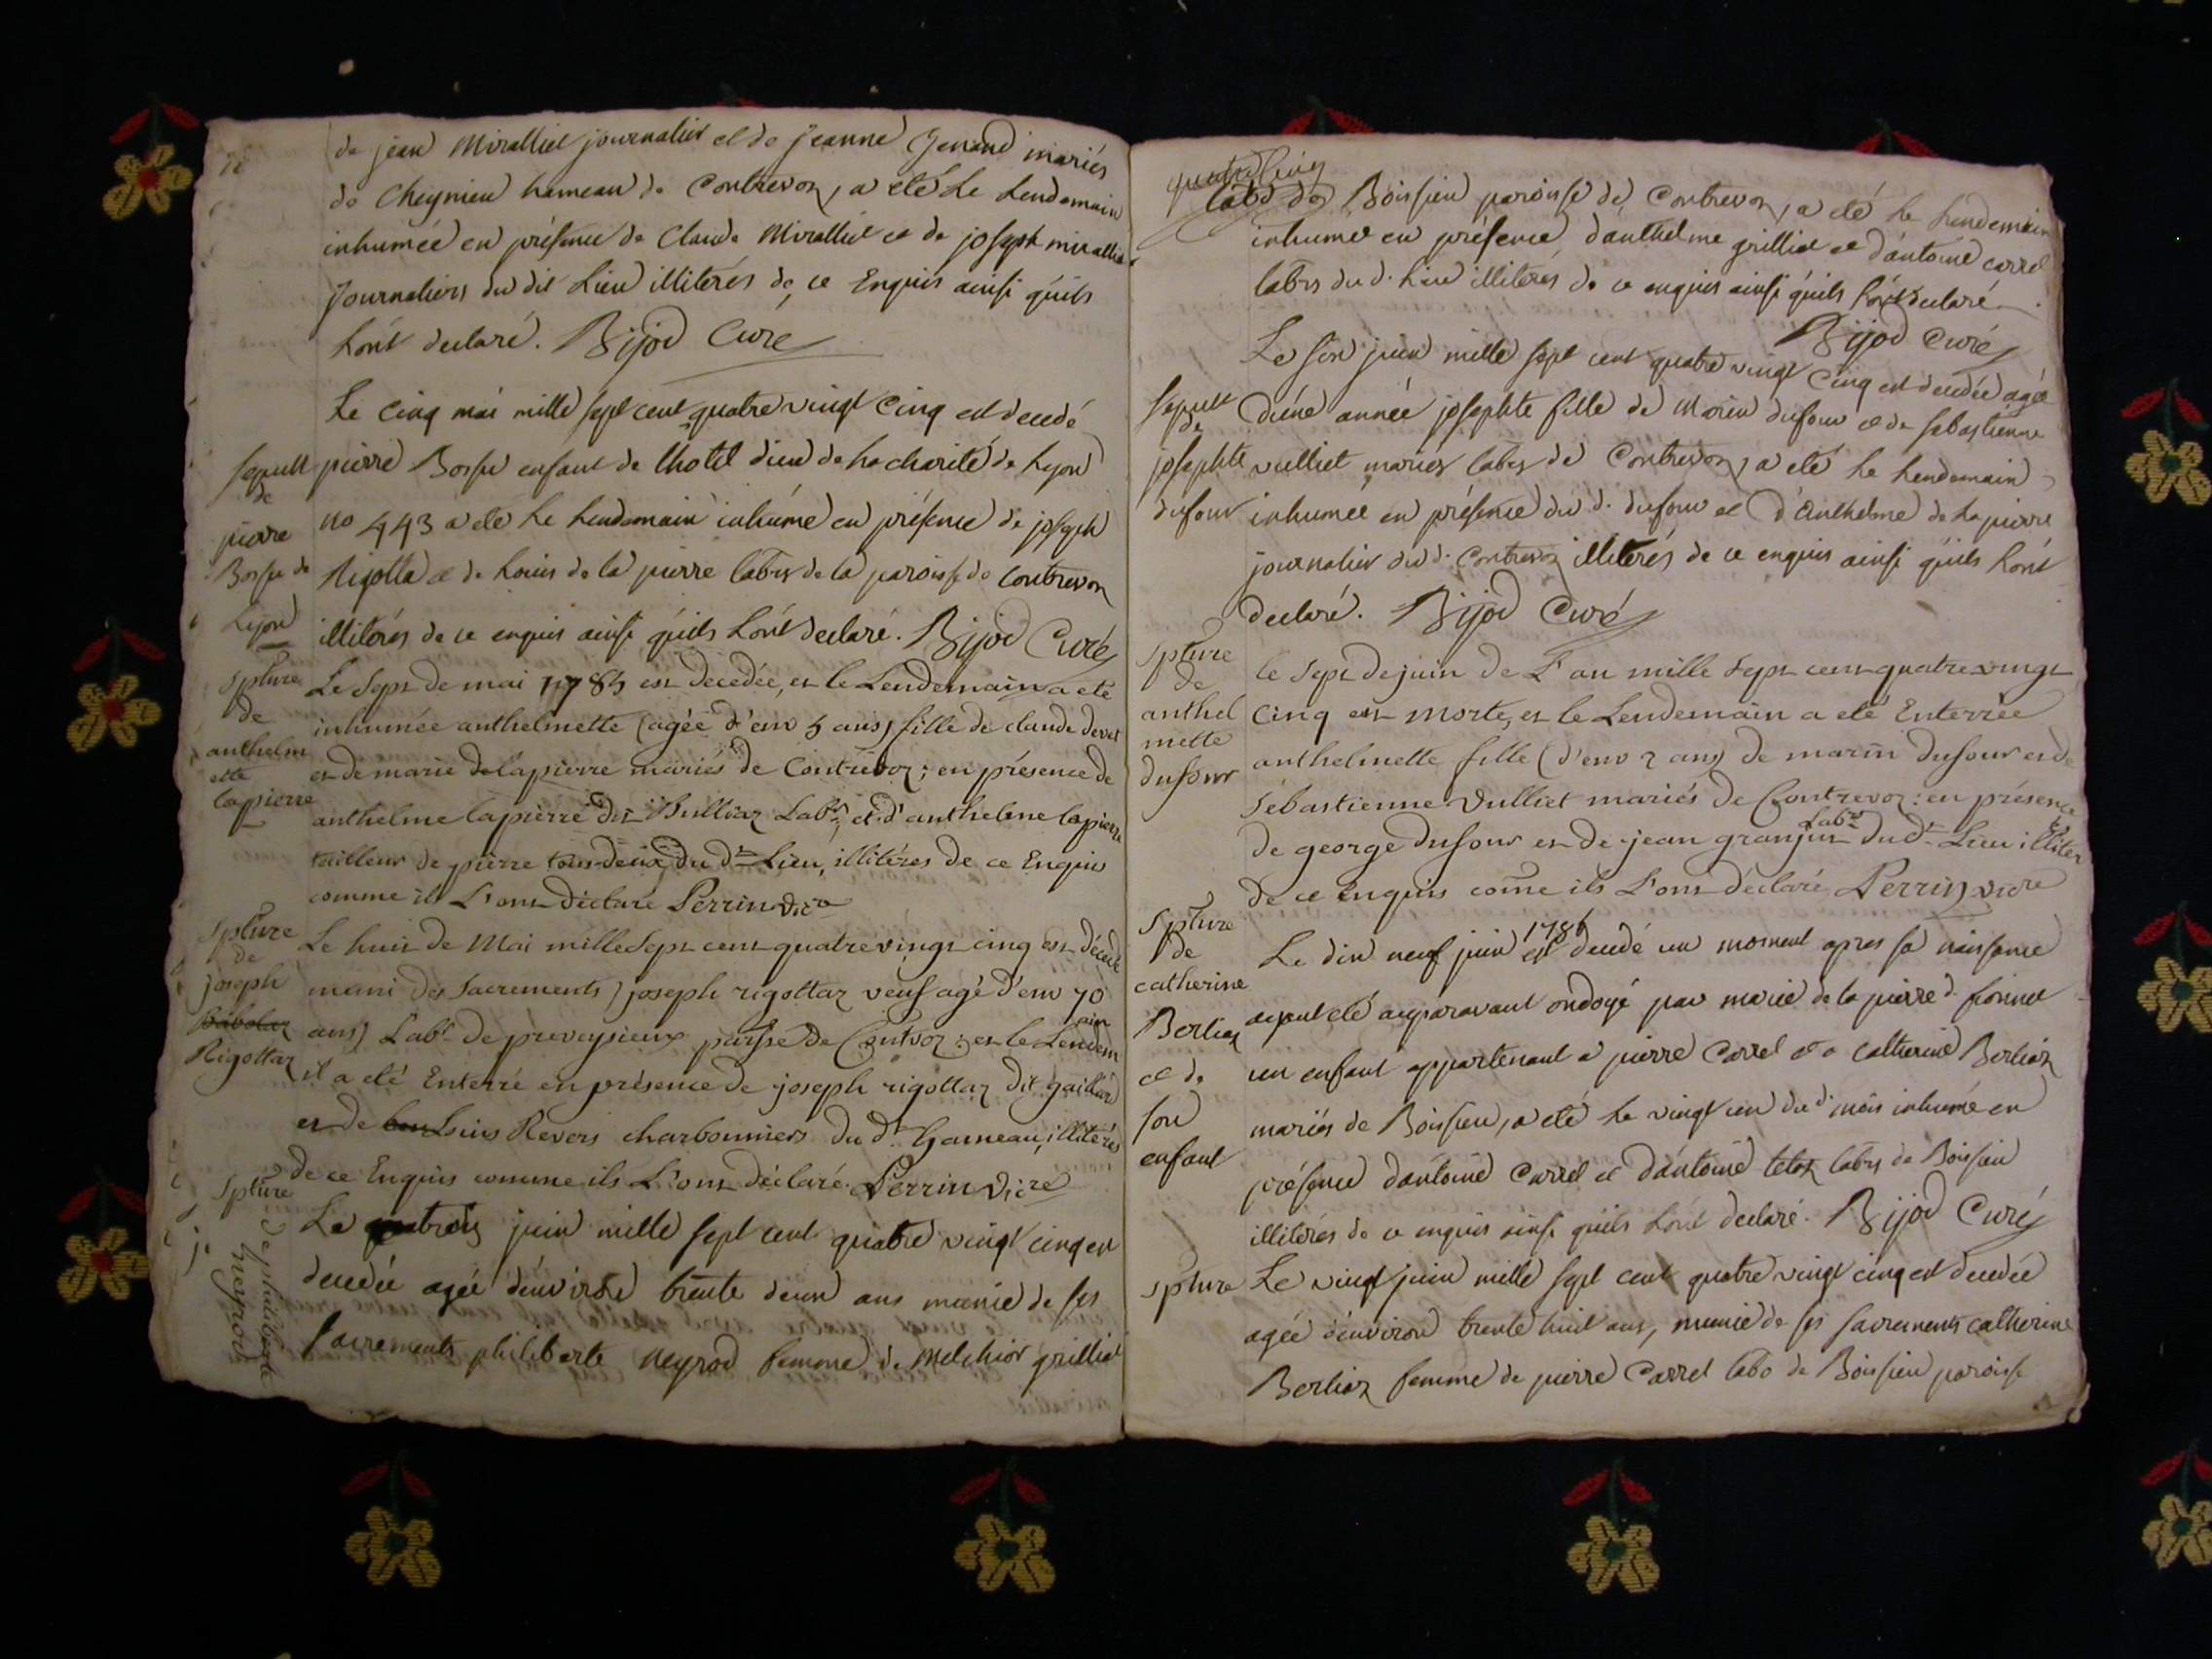 de jean Miralliet journalier et de jeanne Genand mariés
de Cheynieu hameau de Contrevoz, a eté le Lendemain
inhumée en présence de Claude Miralliet et de joseph miralliet
journaliers du dit Lieu illiterés de ce Enquis ainsi quils
Lont declaré. Bijod Curé
Le cinq mai mille sept cent quatre vingt cinq est decedé
sepult
de
pierre
Bosse de
Lyon
pierre Bosse enfant de lhotel dieu de la charité de Lyon
no 443 a eté le lendemain inhumé en présence de joseph
Rigolla et de Louis de la pierre labrs de la paroisse de Contrevoz
illiterés de ce enquis ainsi quils Lont declaré. Bijod Curé
spture
de
anthelm
ette
lapierre
Le Sept de mai 1785 est decedée, et le Lendemain a eté
inhumée anthelmette (agée d'env 5 ans) fille de claude devet
et de marie delapierre mariés de Contrevoz; en présence de
anthelme lapierre dit Bulliaz Labr, et d'anthelme lapierre
tailleur de pierre tous deux du dt Lieu, illitéres de ce Enquis
comme ils L'ont déclaré Perrin vicre
spture
de
joseph
Babolaz
Rigottaz
Le huit de Mai mille Sept cent quatre vingt cinq est décédé
muni des Sacrements) joseph rigottaz veuf agé d'env 70
ans) Labr de preveysieux parsse de Contvoz: et le Lendem
ain
il a eté Enterré en présence de joseph rigottaz dit gaillard
et de Louis Revers charbonniers du dt hameau, illitérés
de ce Enquis comme ils L'ont déclaré. Perrin Vicre
spture
de philiberte
neyrod
Le juin mille sept cent quatre vingt cinq est
decedée agée d'environ trente deux ans munie de ses
sacrements philiberte Neyrod femme de Melchior grilliet
quatre cinq
labr de Boissieu paroisse de Contrevoz, a eté le lendemain
inhumée en présence d'anthelme grilliet et d'antoine carrel
labrs du d. Lieu illiterés de ce enquis ainsi quils Lont declaré
Bijod Curé
sepult
de
josephte
dufour
Le six juin mille sept cent quatre vingt cinq est decedée agée
d'une année josephte fille de Marin dufour et de sebastienne
vulliet mariés labrs de Contrevoz, a eté le lendemain
inhumée en présence du d. dufour et d'Anthelme de la pierre
journalier du d. Contrevoz illiterés de ce enquis ainsi quils Lont
declaré. Bijod Curé
Spture
de
anthel
mette
dufour
le Sept de juin de L'an mille Sept cent quatre vingt
Cinq est Morte, et le Lendemain a eté Enterrée
anthelmette fille (d'env 2 ans) de marin dufour et de
Sébastienne Vulliet mariés de Contrevoz: en présence
de george dufour et de jean granjus Labrs du dt Lieu illiter
és
de ce enquis come ils L'ont déclaré Perrin vicre
Spture
de
catherine
Berliaz
et de
son
enfant
1785
Le dix neuf juin est decedé un moment apres sa naissance
ayant eté auparavant ondoyé par marie de la pierre d. fionnet
un enfant appartenant a pierre Carrel et a catherine Berliaz
mariés de Boissieu, a eté le vingt un du d. mois inhumé en
présence d'antoine Carrel et d'antoine tetaz labrs de Boissieu
illiterés de ce enquis ainsi quils Lont declaré. Bijod Curé
spture
Le vingt juin mille sept cent quatre vingt cinq est decedée
agée d'environ trente huit ans, munie de ses sacrements catherine
Berliaz femme de pierre Carrel labo de Boissieu paroisse